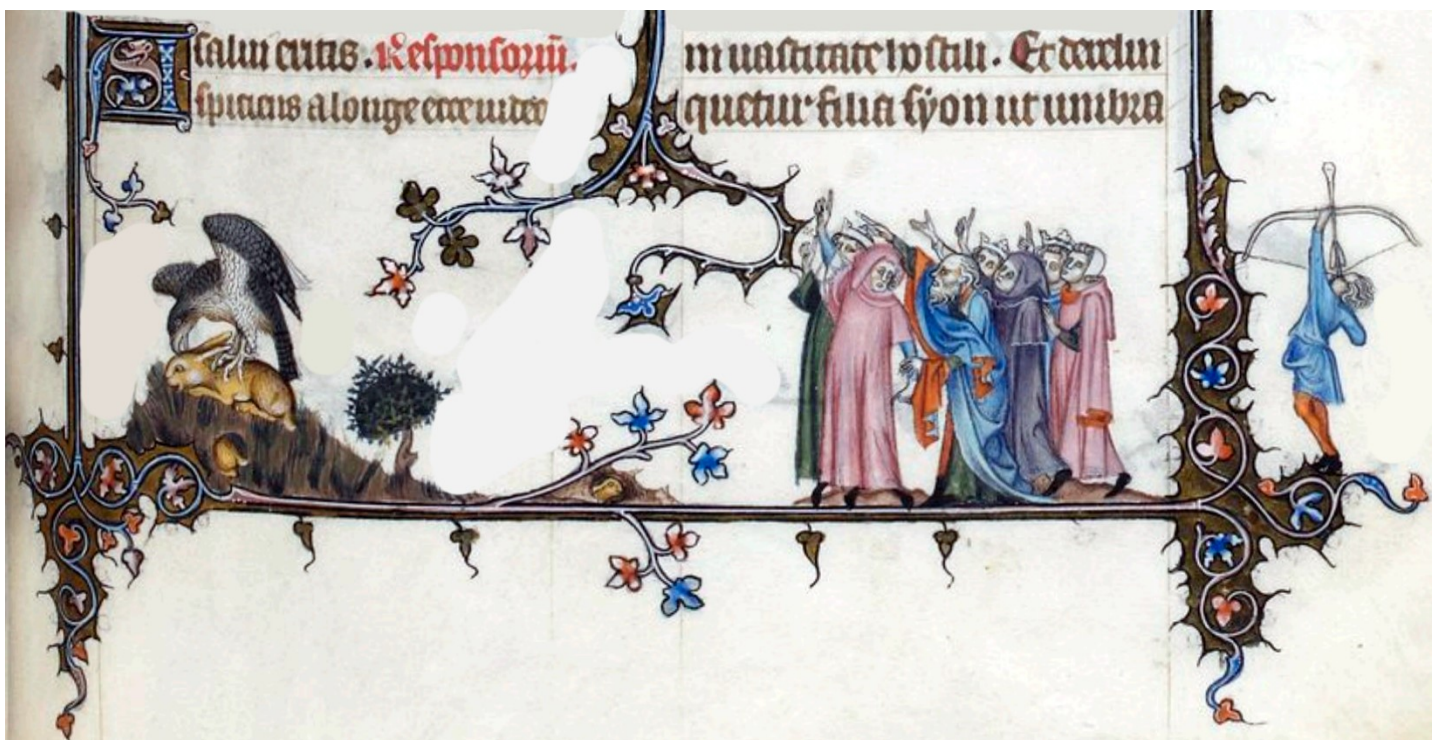 salui eritis. Responsoriū.
Aspiciens a longe ecce uideo
in uastitate hostili. Et derelin
quetur filia syon ut umbra